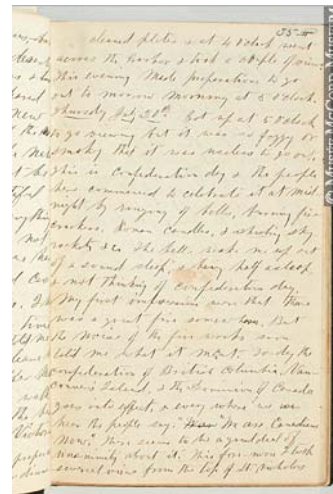 35
cleaned plates & at 4 o'clock went
across the harbor & took a couple of views.
This evening made preparations to go
out to morrow morning at 5 o'clock.
Thursday July 20th Got up at 5 o'clock
to go viewing but it was so foggy or
smoky that it was useless to go on.
This is Confederation day & the people
here commenced to celebrate it at mid
night by ringing of bells, burning fire
crackers, Roman candles, & shooting sky
rockets &c. The bells woke me up out
of a sound sleep, & being half asleep
& not thinking of confederation day,
My first impression were that there
was a great fire somewhere. But
the noise of the fire works soon
told me what it meant. To-day the
Confederation of British Columbia, Van-
couver's Island, & the Dominion of Canada
goes into effect, & every where we
hear the people say. "We are Canadians
Now." There seems to be a good deal of
unanimity about it. This fore-noon I took
several views from the top of St. Nicholas
© Musée McCord Museum